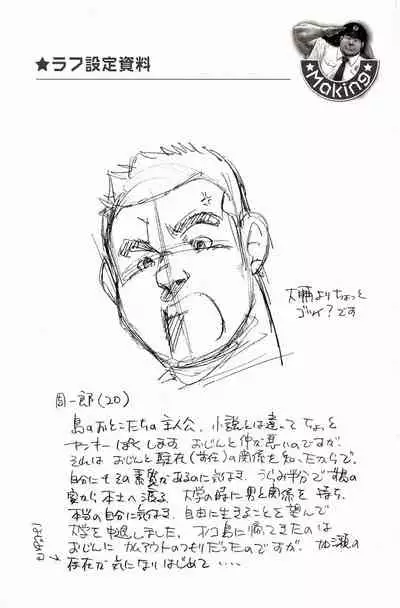 ★ラフ設定資料
★Making★
大輔よりちょっと
ゴツイ?です
周一郎(20)
島のおとこたちの主人公、小説とは違ってちょっと
ヤンキーぽくします おじんと仲が悪いのですが、
それは おじんと駐在(前任)の関係を知ったからで、
自分にもその素質があるのに気付き、うらみ半分で
家から本土へ渡る、大学の時に男と関係を持ち、
本当の自分に気付き、自由に生きることを望んで
大学を中退しました、オコ島に帰ってきたのは
おじんに カムアウトのつもりだったのですが、加瀬の
存在が気になりはじめて・・・・